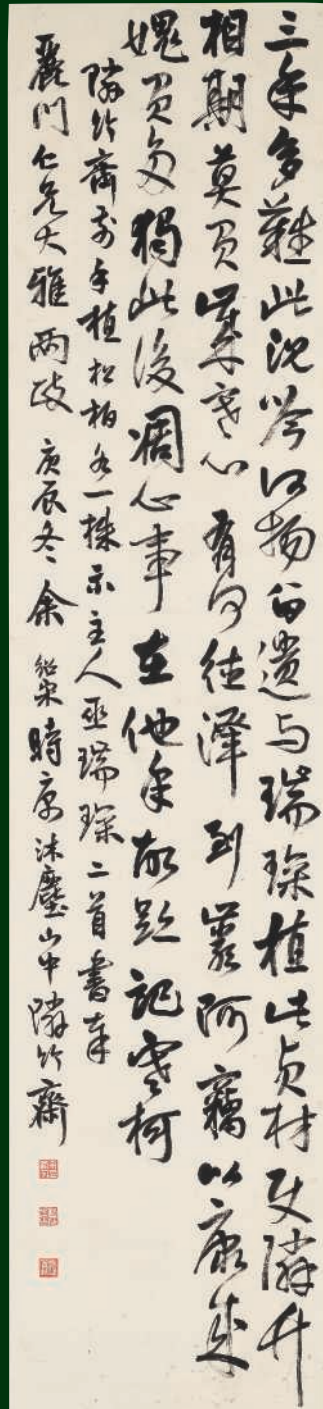 三年多難此沈吟何物可遺与瑞琛植此貞材隣竹
相期莫負歲寒心有何德澤到巖阿竊比康成
愧負多獨此後凋心事在他年題記寒柯
隣竹齋前手植松柏各一株示主人巫瑞琛二首書奉
麗門仁兄大雅兩政庚辰冬余紹宋時寓沐塵山中隣竹齋